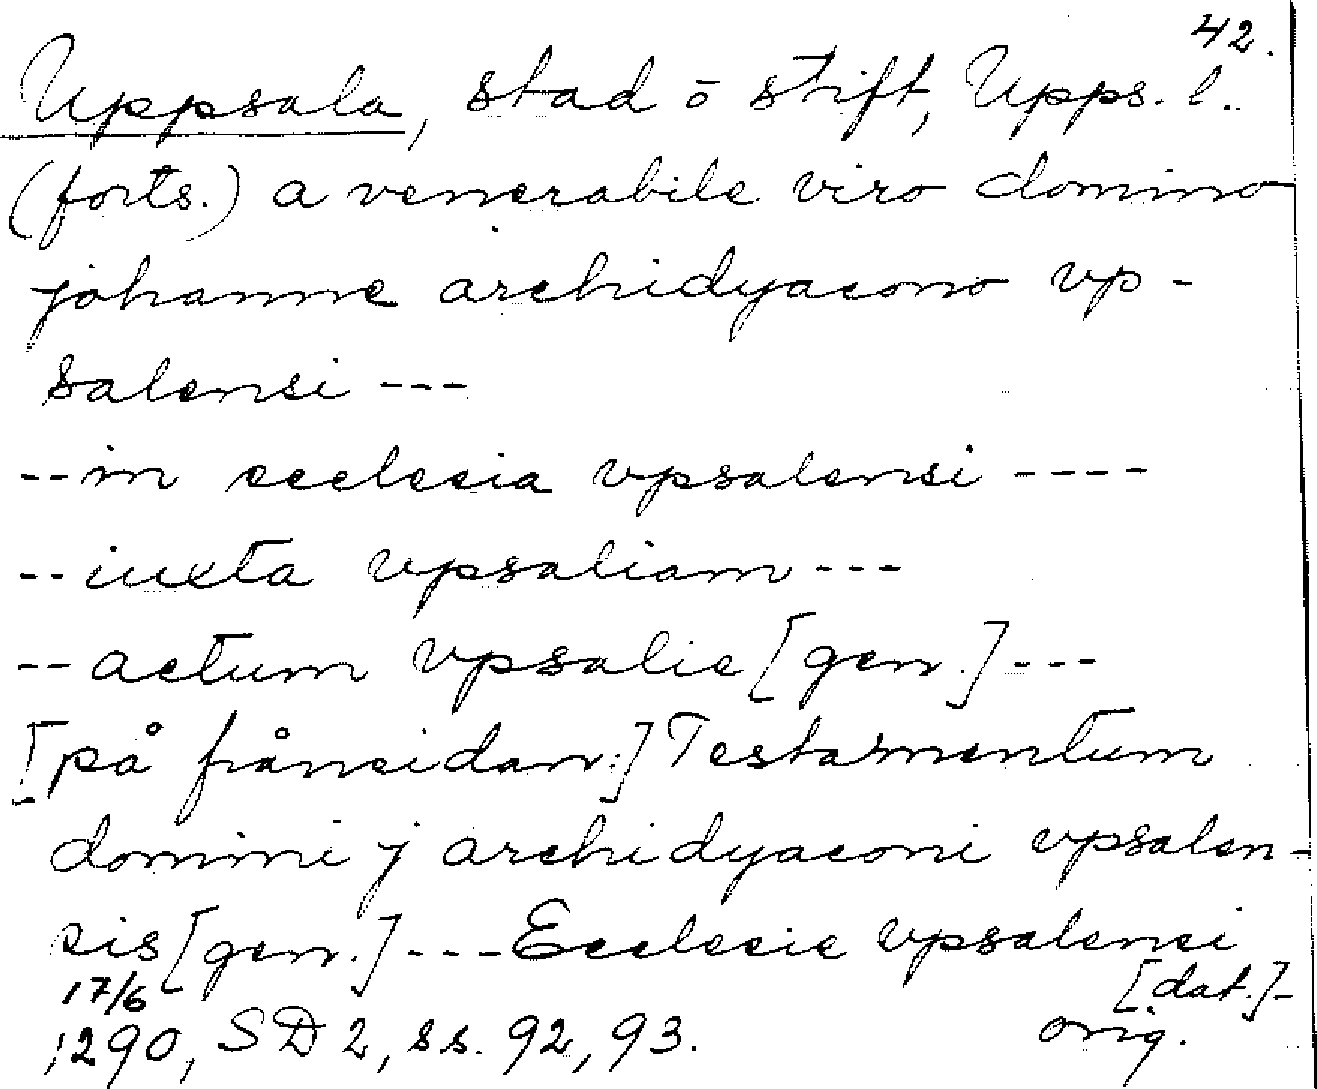 42.
Uppsala, stad o stift, Upps. l.
(forts.) a venerabile viro domino
johanne archidyacono vp-
salensi ---
-- in ecclesia vpsalensi ----
-- iuxta vpsaliam ---
-- actum vpsalie [gen.] ---
[på frånsidan:] Testamentum
domini j archidyaconi vpsalen-
sis [gen.] --- Ecclesie vpsalensi
[dat.]-
17/6
1290, SD 2, ss. 92, 93. orig.